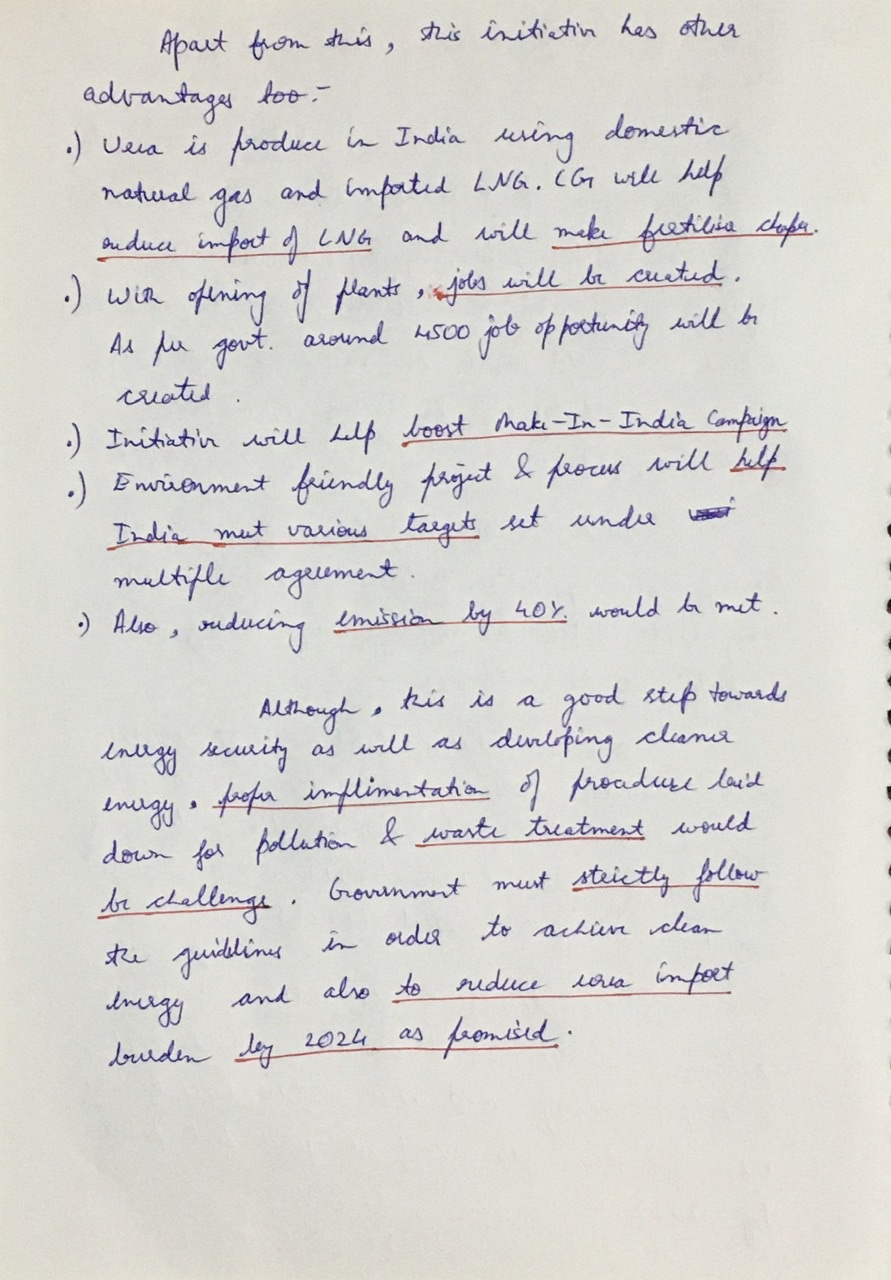 Apart from this, this initiative has other
advantages too:-
•) Urea is produce in India using domestic
natural gas and imported LNG. CG will help
reduce import of LNG and will make fertiliser cheaper.
•) With opening of plants, jobs will be created.
As per govt. around 4500 job opportunity will be
created.
•) Initiative will help boost Make-In-India Campaign
•) Environment friendly project & process will help
India meet various targets set under
multiple agreement.
•) Also, reducing emission by 40%. would be met.
Although, this is a good step towards
energy security as well as developing cleaner
energy, proper implimentation of procedure laid
down for pollution & waste treatment would
be challenge. Government must strictly follow
the guidelines in order to achieve clean
energy and also to reduce urea import
burden by 2024 as promised.